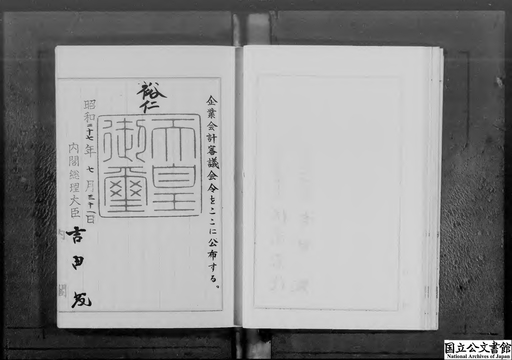 企業会計審議会令をここに公布する。
裕仁
天皇
御璽
昭和二十七年七月三十一日
内閣総理大臣
吉田茂
内閣
国立公文書館
National Archives of Japan